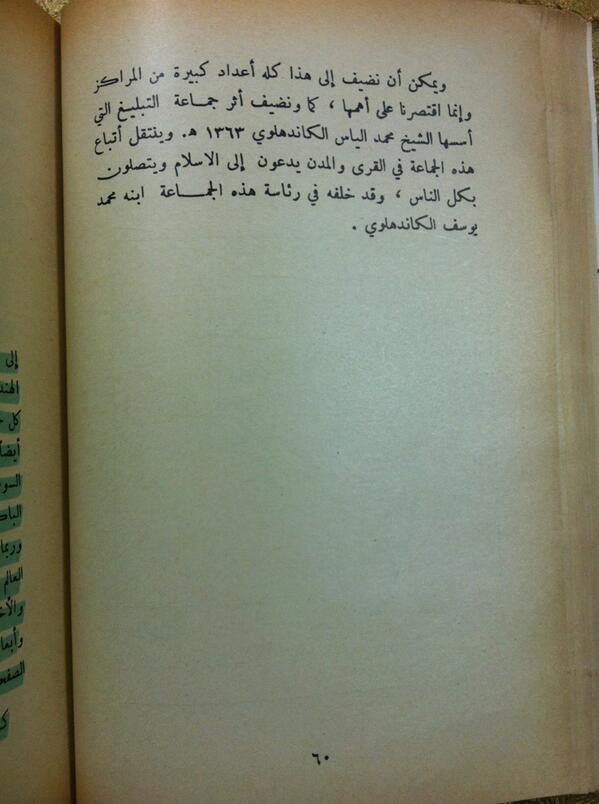 ويمكن أن نضيف إلى هذا كله أعداد كبيرة من المراكز
وإنما اقتصرنا على أهمها ، كما ونضيف أثر جماعة التبليغ التي
أسسها الشيخ محمد الياس الكاندهلوي ١٣٦٣ هـ. وينتقل أتباع
هذه الجماعة في القرى والمدن يدعون إلى الاسلام ويتصلون
بكل الناس ، وقد خلفه في رئاسة هذه الجماعة ابنه محمد
يوسف الكاندهلوي .
٦٠
إلى
الهند
كل
أيضاً
وربما
العالم